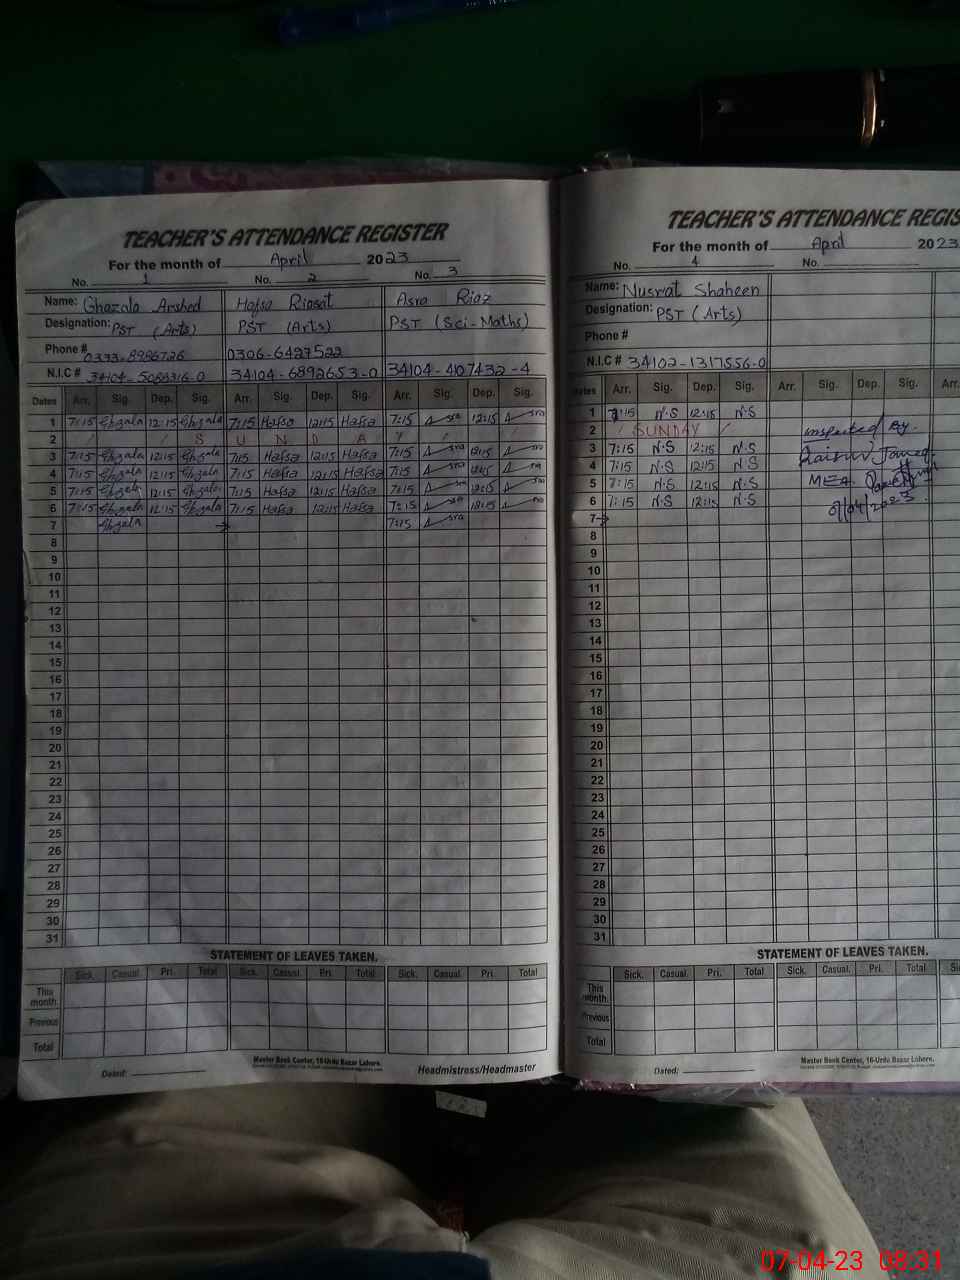 TEACHER'S ATTENDANCE REGISTER
For the month of April 2023
No. 1 No. 2 No. 3
Name: Ghazala Arshed Hafsa Riasat Asra Riaz
Designation: PST (Arts) PST (Arts) PST (Sci-Maths)
Phone # 0333-8986726 0306-6427522
N.I.C # 34104-5066316-0 34104-6892653-0 34104-407432-4
Dates Arr. Sig. Dep. Sig. Arr. Sig. Dep. Sig. Arr. Sig. Dep. Sig.
1 7:15 Ghzala 12:15 Ghzala 7:15 Hafsa 12:15 Hafsa 7:15 Asra 12:15 Asra
2 / / S U N D A Y / / /
3 7:15 Ghzala 12:15 Ghzala 7:15 Hafsa 12:15 Hafsa 7:15 Asra 12:15 Asra
4 7:15 Ghzala 12:15 Ghzala 7:15 Hafsa 12:15 Hafsa 7:15 Asra 12:15 Asra
5 7:15 Ghzala 12:15 Ghzala 7:15 Hafsa 12:15 Hafsa 7:15 Asra 12:15 Asra
6 7:15 Ghzala 12:15 Ghzala 7:15 Hafsa 12:15 Hafsa 7:15 Asra 12:15 Asra
7 Ghzala → 7:15 Asra
8
9
10
11
12
13
14
15
16
17
18
19
20
21
22
23
24
25
26
27
28
29
30
31
STATEMENT OF LEAVES TAKEN.
Sick. Casual. Pri. Total Sick. Casual. Pri. Total Sick. Casual. Pri. Total
This month.
Previous
Total
Dated:
Master Book Center, 16-Urdu Bazar Lahore.
Headmistress/Headmaster
TEACHER'S ATTENDANCE REGIS
For the month of April 2023
No. 4 No.
Name: Nusrat Shaheen
Designation: PST (Arts)
Phone #
N.I.C # 34102-1317556-0
Dates Arr. Sig. Dep. Sig. Arr. Sig. Dep. Sig. Arr.
1 7:15 N.S 12:15 N.S
2 / SUNDAY /
3 7:15 N.S 12:15 N.S
4 7:15 N.S 12:15 N.S
5 7:15 N.S 12:15 N.S
6 7:15 N.S 12:15 N.S
7 →
8
9
10
11
12
13
14
15
16
17
18
19
20
21
22
23
24
25
26
27
28
29
30
31
inspected By.
MEA
07/04/2023.
STATEMENT OF LEAVES TAKEN.
Sick. Casual. Pri. Total Sick. Casual. Pri. Total
This month.
Previous
Total
Dated:
Master Book Center, 16-Urdu Bazar Lahore.
07-04-23 08:31